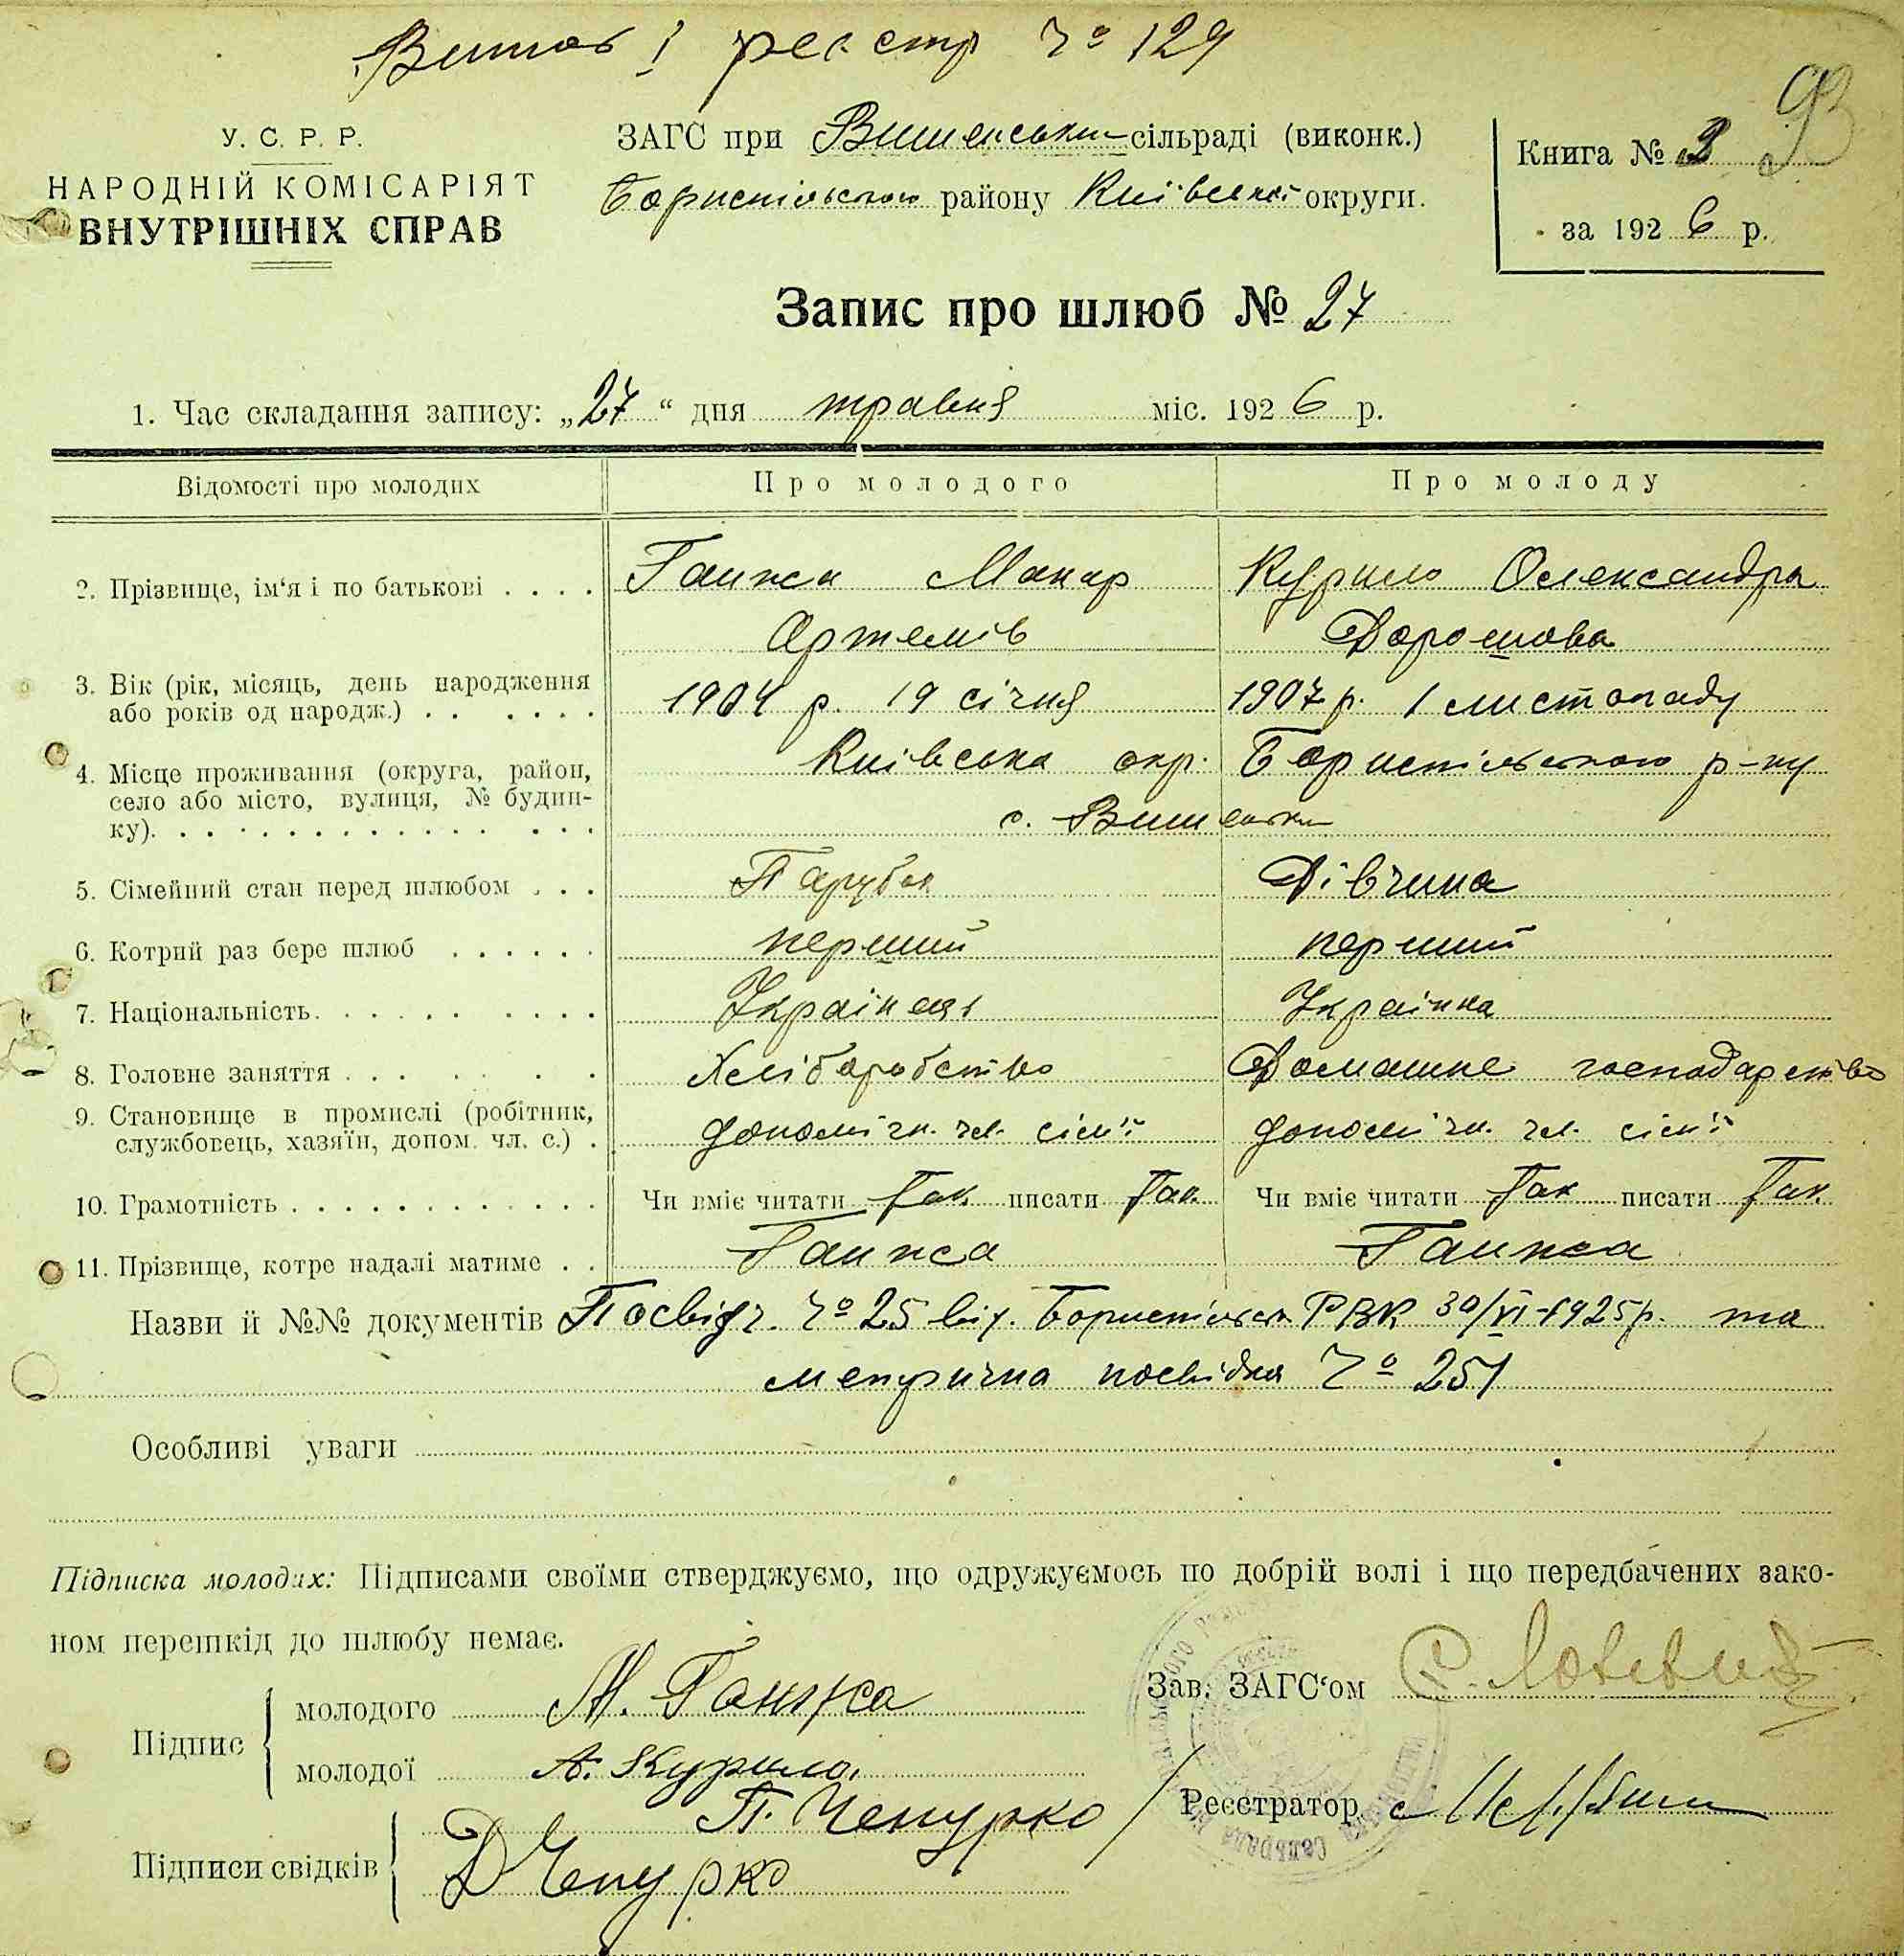 Витяг І реєстр № 129
93
У. С. Р. Р.
НАРОДНІЙ КОМІСАРІЯТ
ВНУТРІШНІХ СПРАВ
ЗАГС при Вишенськ сільраді (виконк.)
Бориспільського району Київської округи.
Книга № 3
за 1926 р.
Запис про шлюб № 27
1. Час складання запису: „27“ дня травня міс. 1926 р.
Відомості про молодих Про молодого Про молоду
2. Прізвище, ім‘я і по батькові . . . . Ганжа Макар Курило Олександра
Артемів Дорошова
3. Вік (рік, місяць, день народження 1904 р. 19 січня 1907 р. 1 листопаду
або років од народж.) . . . . . .
4. Місце проживання (округа, район, Київська окр. Бориспільського р-ну
село або місто, вулиця, № будин- с. Вишеньки
ку). . . . . . . . . . . . . . .
5. Сімейний стан перед шлюбом . . . Парубок Дівчина
6. Котрий раз бере шлюб . . . . . . перший перший
7. Національність. . . . . . . . . . Українець Українка
8. Головне заняття . . . . . . . . Хліборобство Домашнє господарство
9. Становище в промислі (робітник, допомічн. чл. сім'ї допомічн. чл. сім'ї
службовець, хазяїн, допом. чл. с.) .
10. Грамотність . . . . . . . . . . . . . Чи вміє читати Так писати Так Чи вміє читати Так писати Так
11. Прізвище, котре надалі матиме . . Ганжа Ганжа
Назви й №№ документів Посвідч. № 25 вид. Бориспільськ РВК 30/VI-1925 р. та
метрична посвідка № 251
Особливі уваги
Підписка молодих: Підписами своїми стверджуємо, що одружуємось по добрій волі і що передбачених зако-
ном перешкід до шлюбу немає.
Підпис
молодого М. Ганжа
молодої А. Курило.
Зав. ЗАГС‘ом
Підписи свідків
П. Чепурко
Д Чепурко
Реєстратор